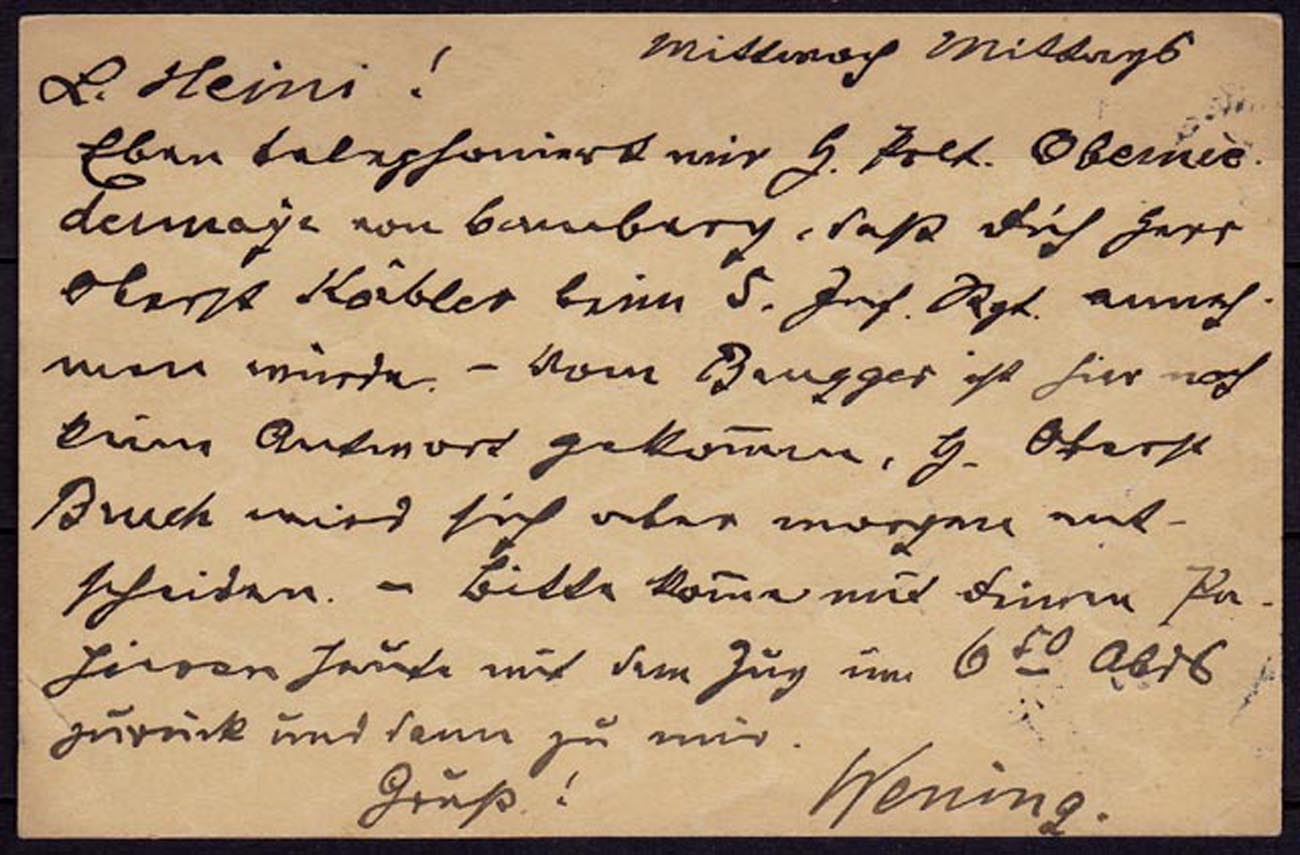 Mittwoch Mittags
L. Heini!
Eben telephoniert mir H. Oblt. Obernie-
dermaye von Bamberg, daß Dich Herr
Oberst Köbler beim 5. Inf. Rgt. anneh-
men würde. – Vom Brugger ist hier noch
keine Antwort gekom̄en, H. Oberst
Bruch wird sich aber morgen ent-
scheiden. – Bitte kom̄e mit Deinen Pa-
pieren heute mit dem Zug um 6 50 Abds
zurück und dann zu mir.
Gruß! Wening.